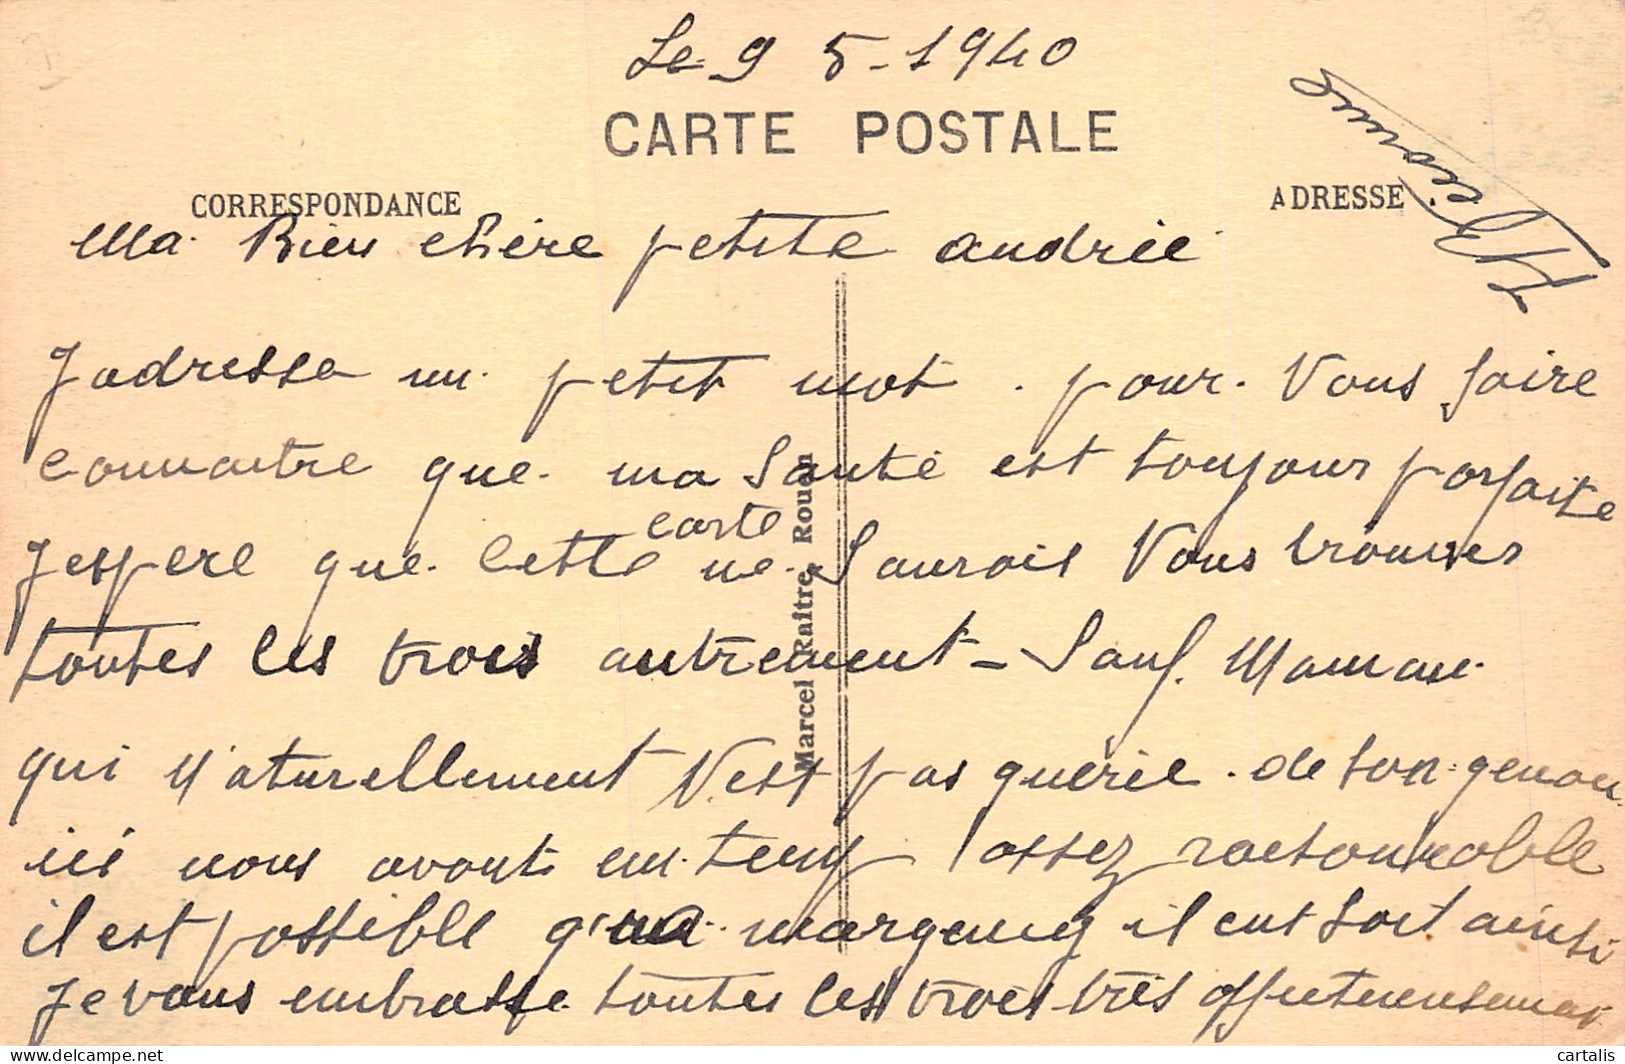 Le 9 5-1940
CARTE POSTALE
CORRESPONDANCE
ADRESSE
Ma Bien chère petite andrée
J adresse un petit mot. pour. Vous faire
connaitre que. ma Santé est toujour parfaite
J'espere que cette carte ne Saurait Vous trouver
toutes les trois autrement - Sauf. Maman
qui N'aturellement N'est pas guérie. de son genou
ici nous avont un temp assez raisonnable
il est possible qu'a margency il en soit ainsi
Je vous embrasse toutes les trois très affectueusement
Marcel Raitre, Rouen
cartalis